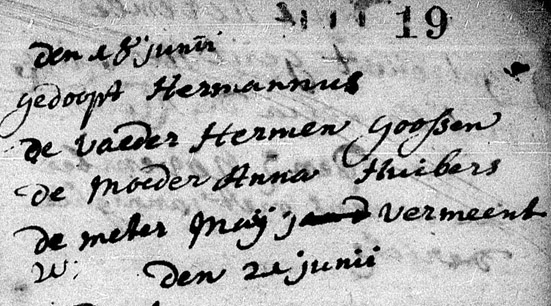 19
den 18 junii
gedoopt Hermannus
de vaeder Hermen Goossen
de moeder Anna Huibers
de meter Maij vermeent
W:
den 21 junii